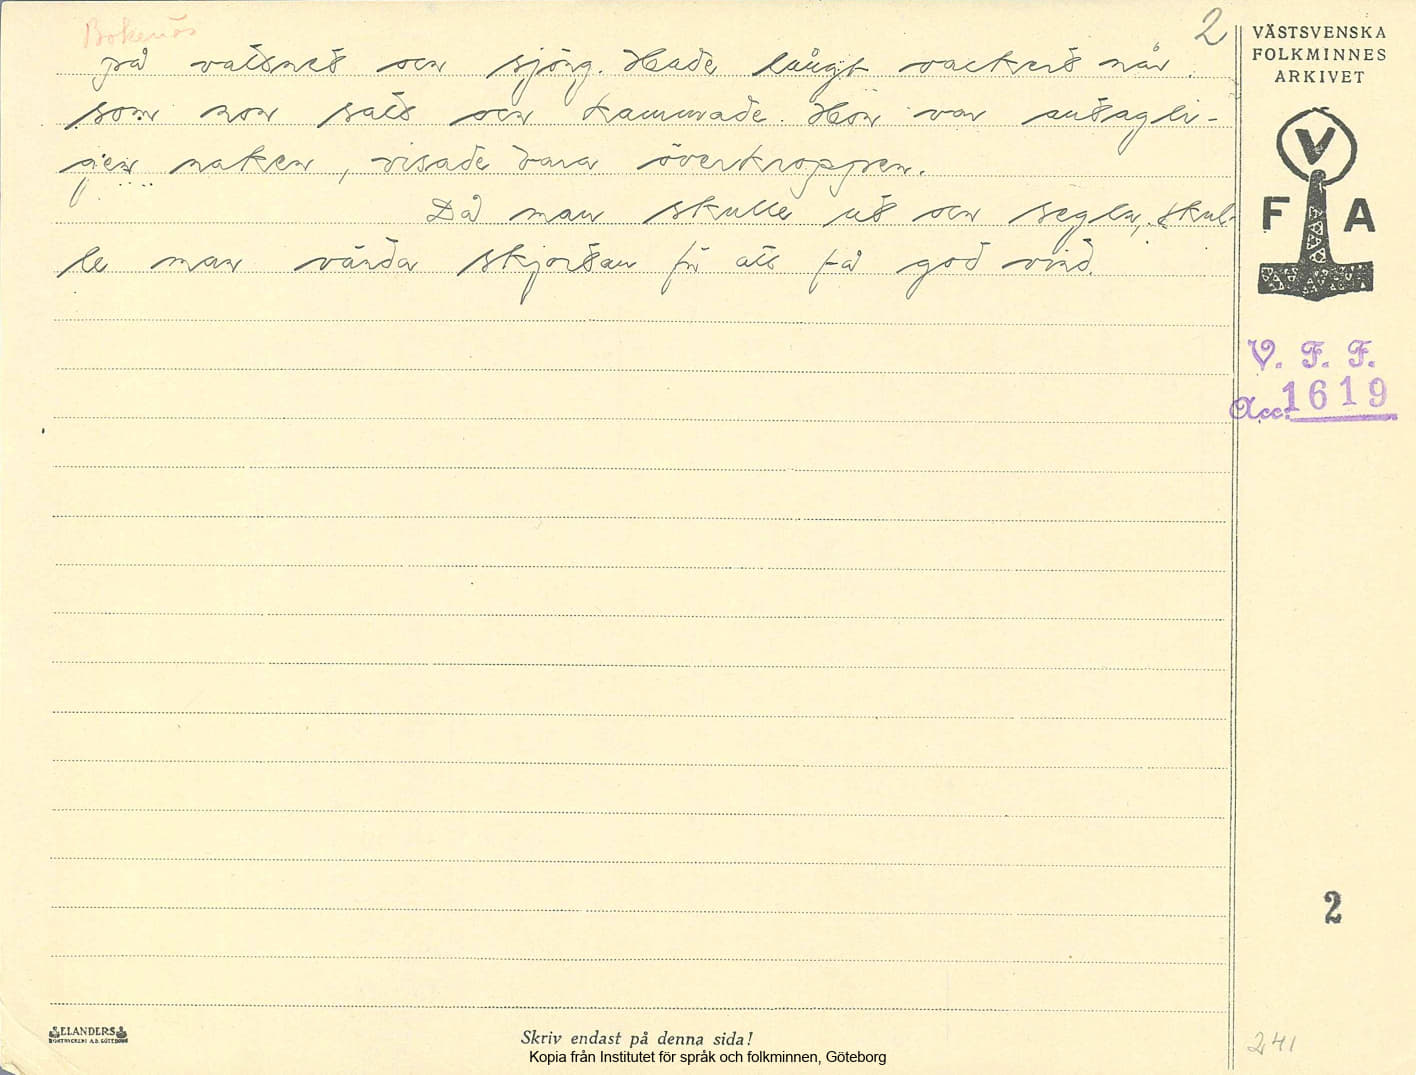 Bokenäs
2
på vattnet och sjöng. Hade långt vackert hår
som hon satt och kammade. Hon var antagli-
gen naken, visade bara överkroppen.
Då man skulle ut och segla, skul-
le man vända skjortan för att få god vind.
VÄSTSVENSKA
FOLKMINNES
ARKIVET
V
F A
V. F. F.
Acc. 1619
2
241
ELANDERS
BOKTRYCKERI A.B. GÖTEBORG
Skriv endast på denna sida!
Kopia från Institutet för språk och folkminnen, Göteborg